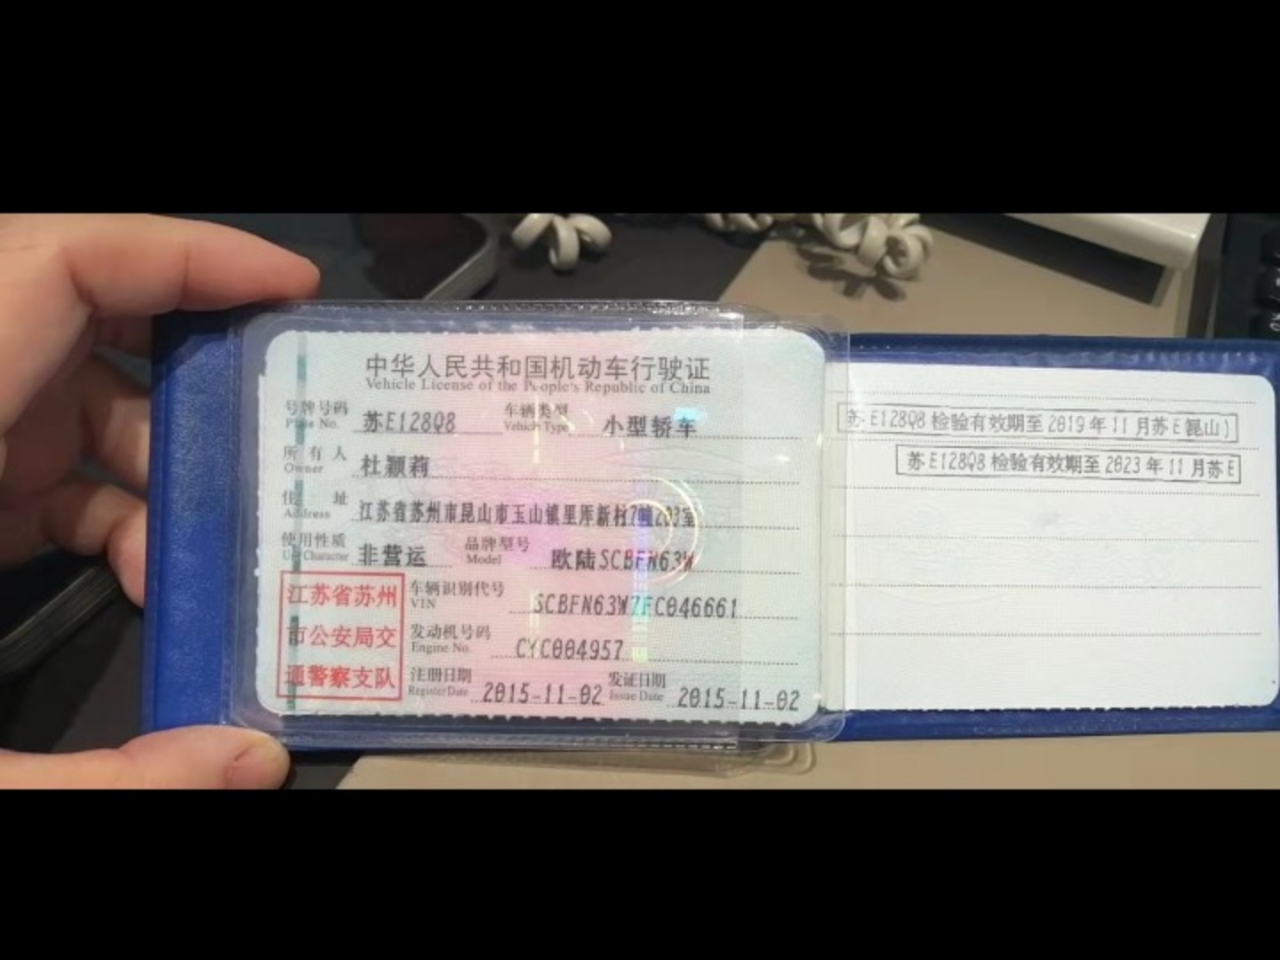 中华人民共和国机动车行驶证
Vehicle License of the People's Republic of China
号牌号码 苏E128Q8 车辆类型 小型轿车
Plate No. Vehicle Type
所有人 杜颖莉
Owner
住址 江苏省苏州市昆山市玉山镇里厍新村7幢203室
Address
使用性质 非营运 品牌型号 欧陆SCBFN63W
Use Character Model
江苏省苏州
市公安局交
通警察支队
车辆识别代号 SCBFN63W7FC046661
VIN
发动机号码 CYC004957
Engine No.
注册日期 2015-11-02 发证日期 2015-11-02
Register Date Issue Date
苏E128Q8检验有效期至2019年11月苏E(昆山)
苏E128Q8检验有效期至2023年11月苏E